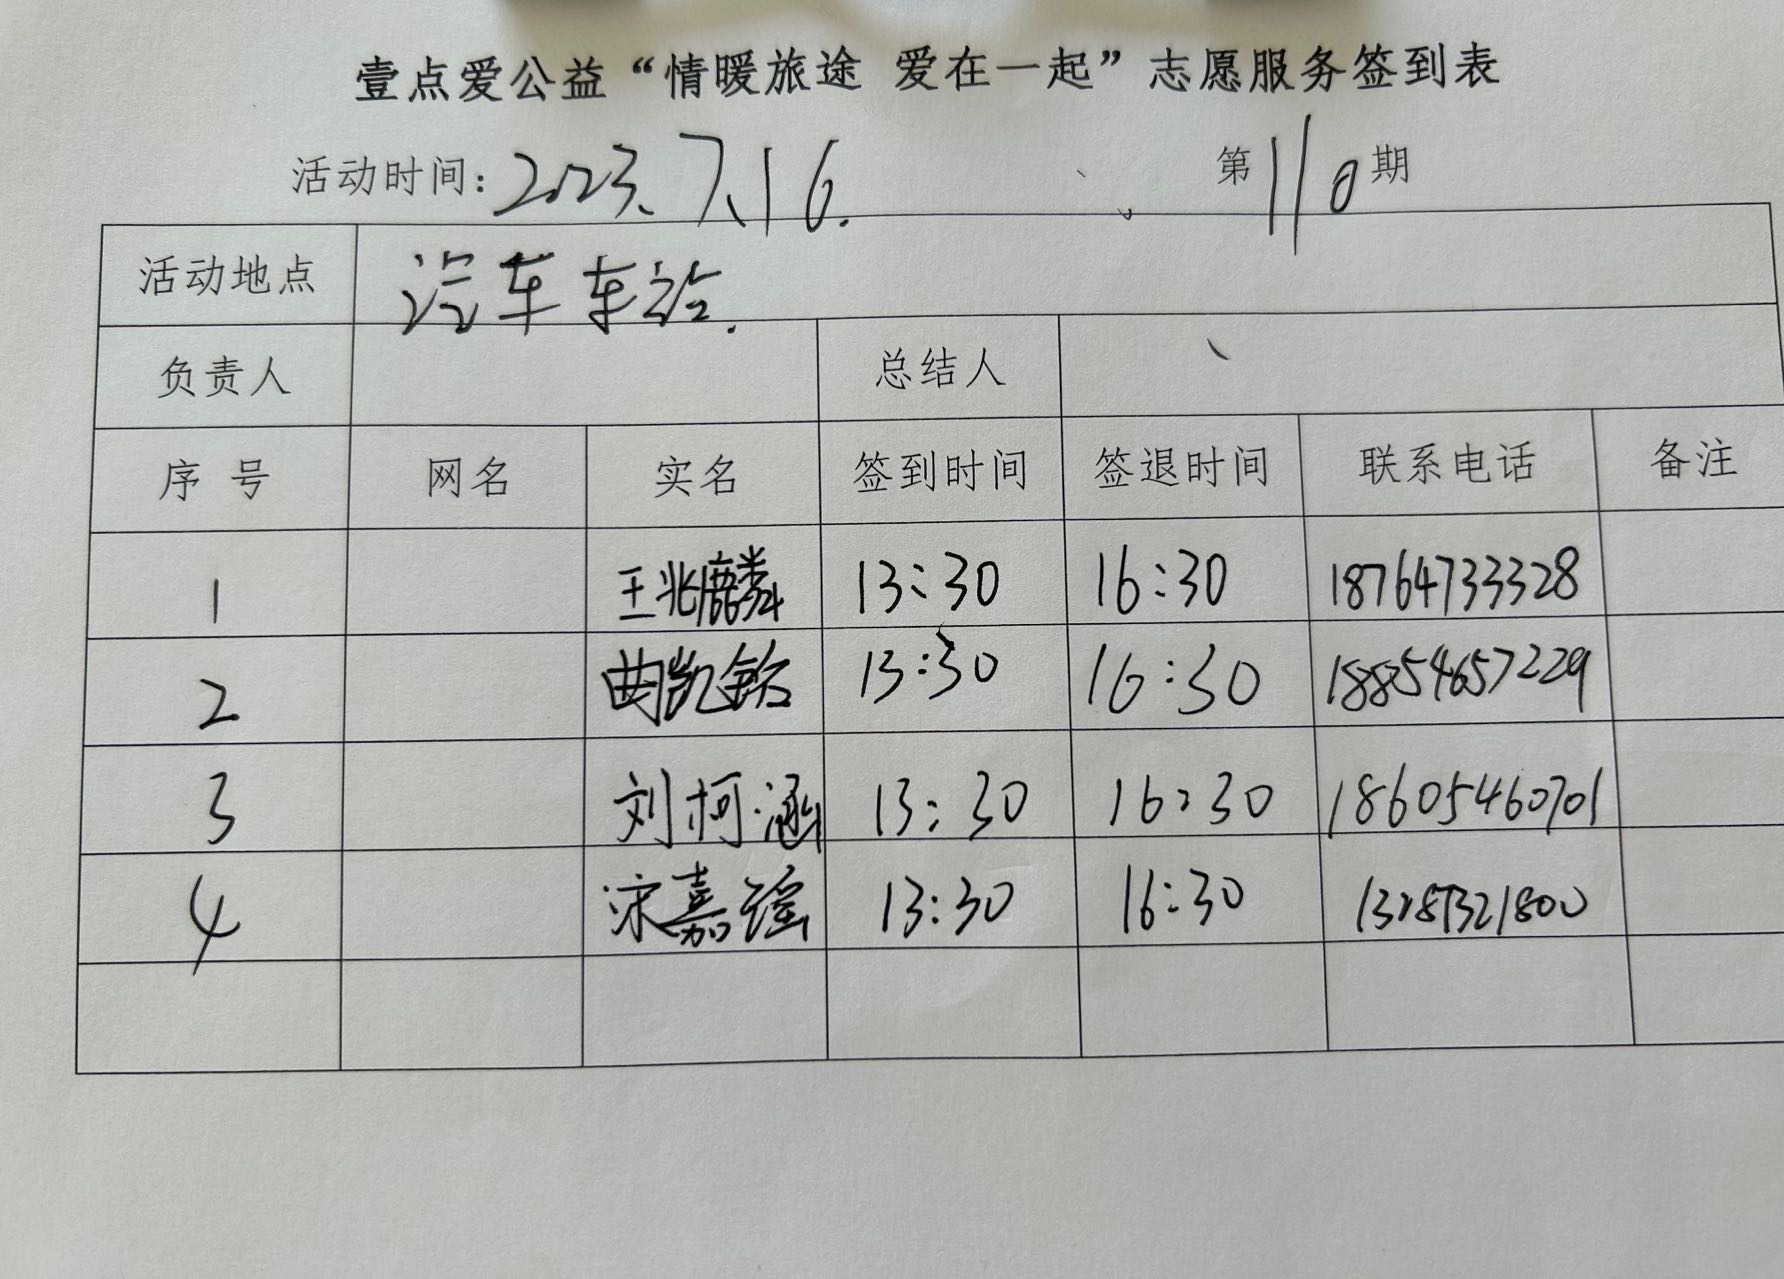 壹点爱公益“情暖旅途 爱在一起”志愿服务签到表
活动时间: 2023.7.16. 第110期
活动地点 汽车车站.
负责人 总结人
序号 网名 实名 签到时间 签退时间 联系电话 备注
1 王兆麟 13:30 16:30 18764733328
2 曲凯铭 13:30 16:30 18854657229
3 刘柯涵 13:30 16:30 18605460701
4 宋嘉瑶 13:30 16:30